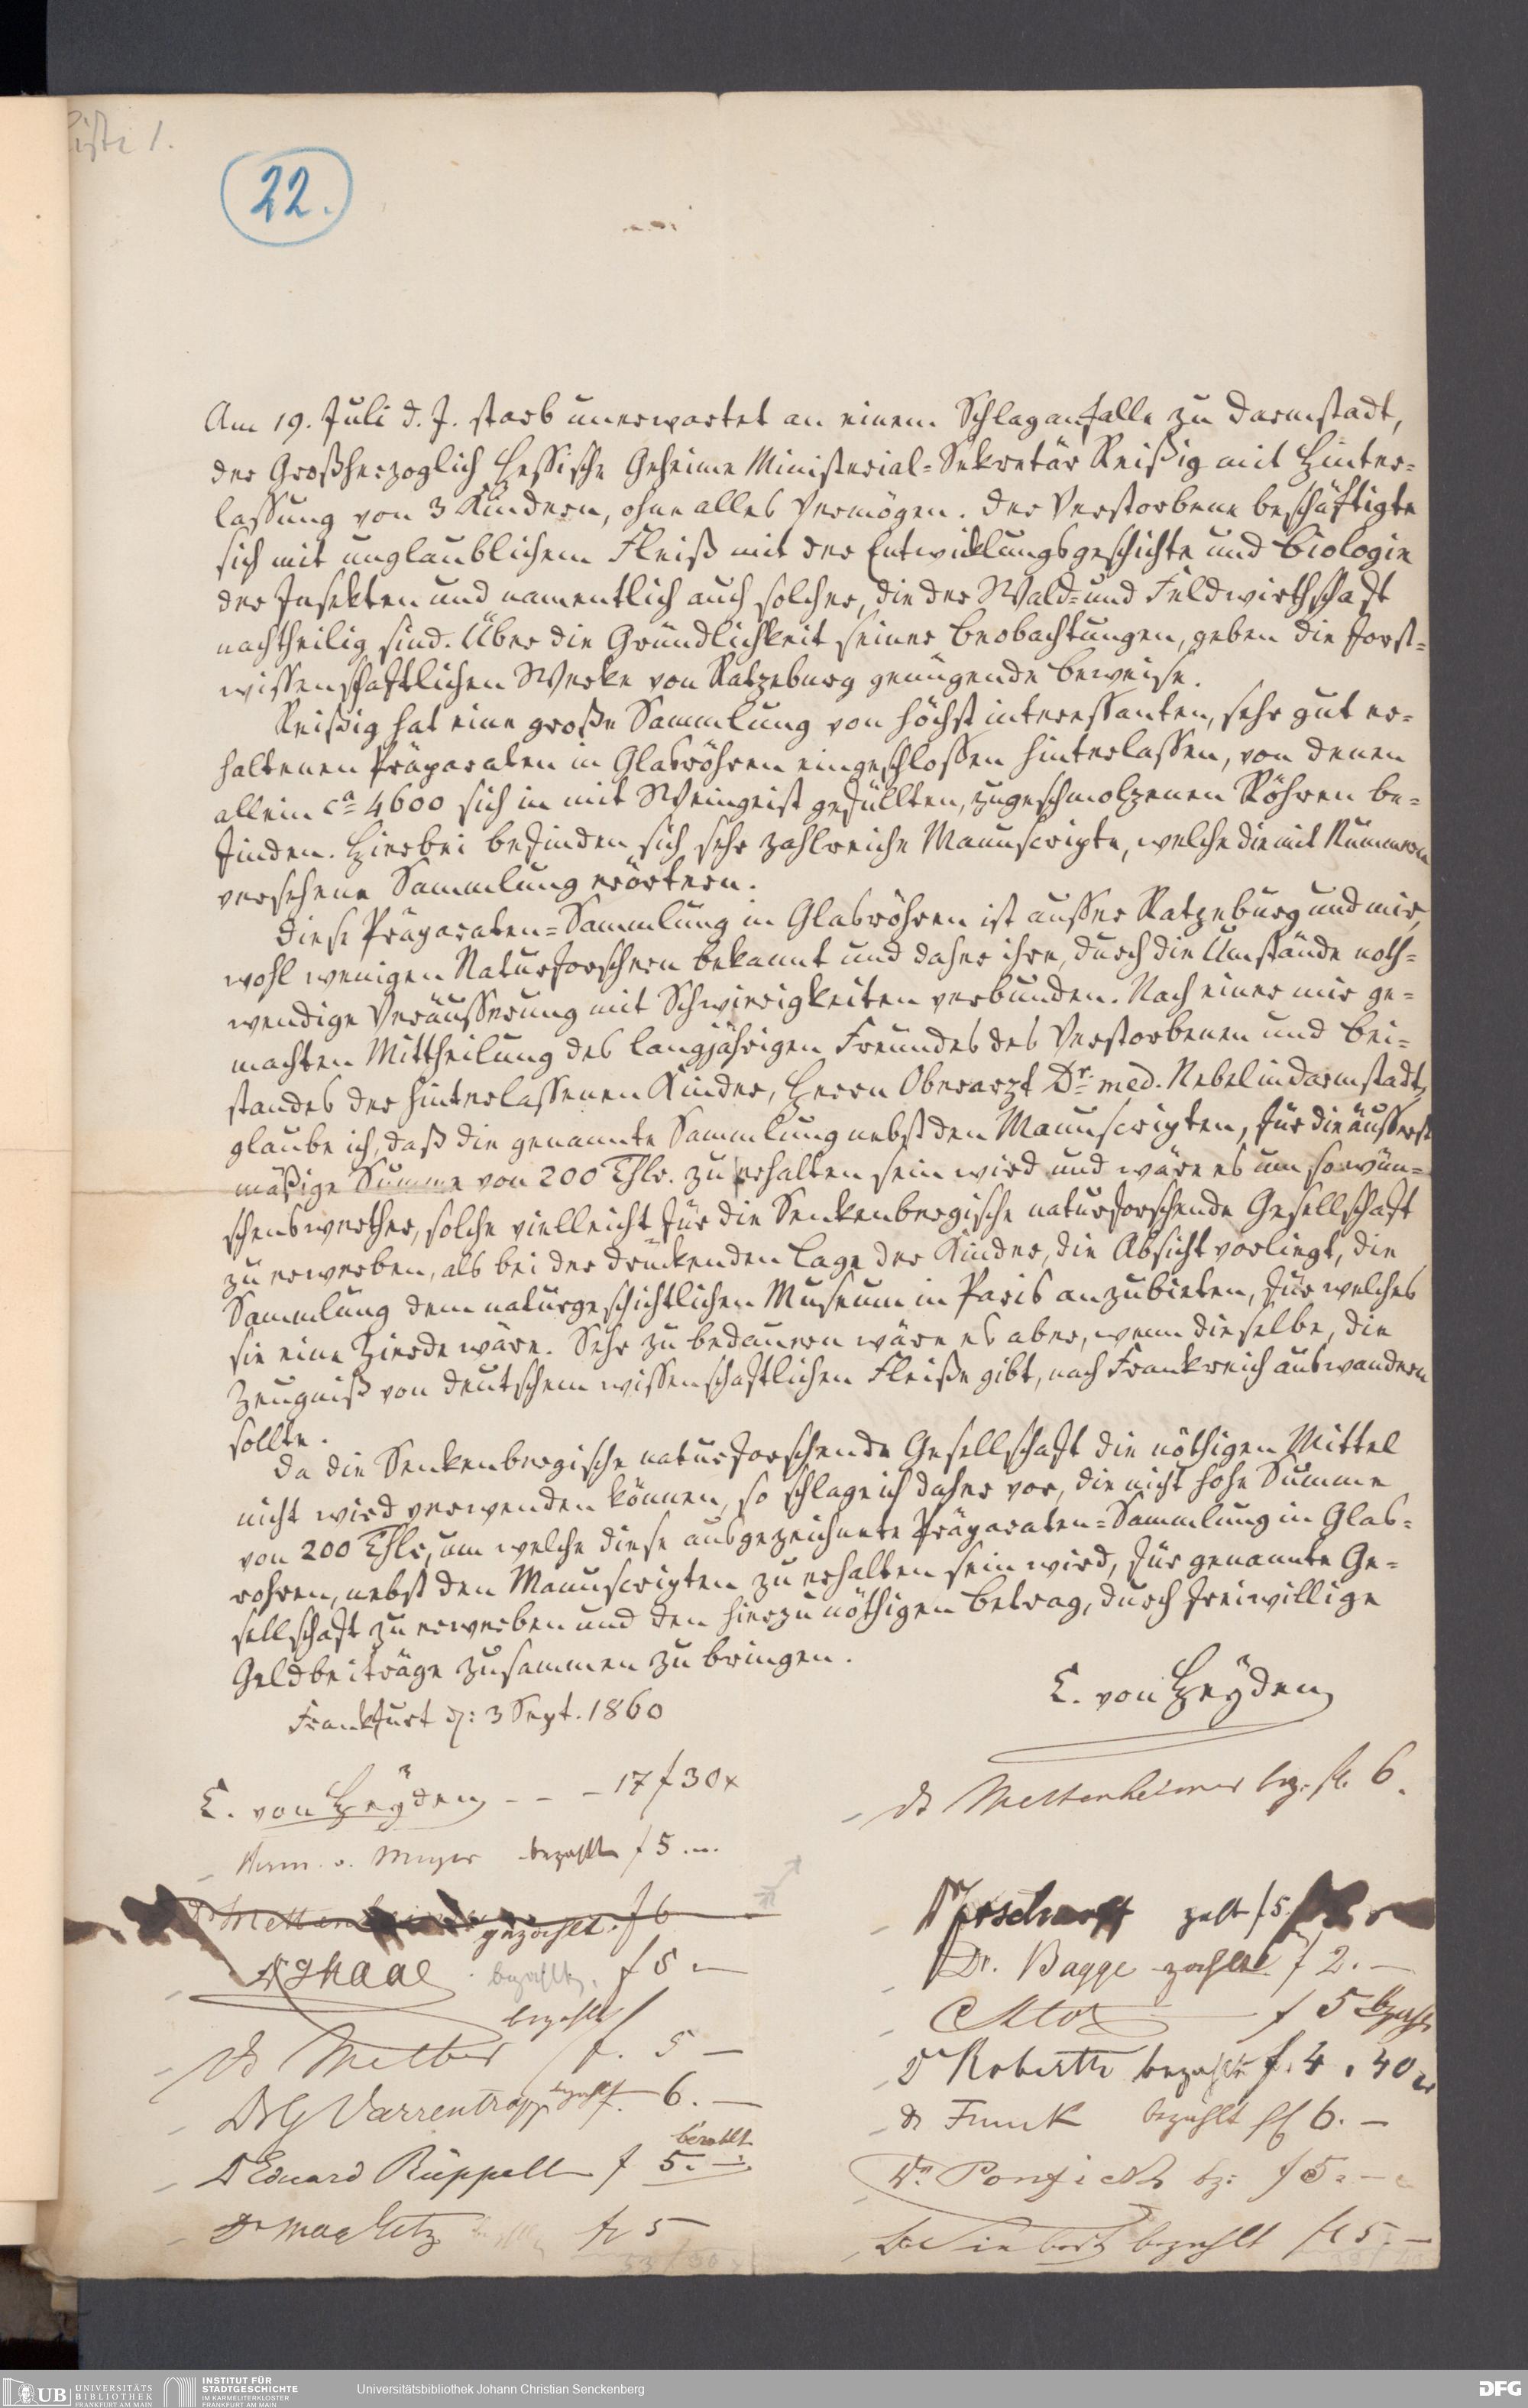 Liste 1.
22.
Am 19. Juli d. J. starb unerwartet an einem Schlaganfalle zu Darmstadt,
der Großherzoglich Hessische Geheime Ministerial-Sekretär Reißig mit Hinter-
lassung von 3 Kindern, ohne alles Vermögen. Der Verstorbene beschäftigte
sich mit unglaublichem Fleiß mit der Entwicklungsgeschichte und Biologie
der Insekten und namentlich auch solcher, die der Wald- und Feldwirthschaft
nachtheilig sind. Über die Gründlichkeit seiner Beobachtungen, geben die forst-
wissenschaftlichen Werke von Ratzeburg genügende Beweise.
Reißig hat eine große Sammlung von höchst interessanten, sehr gut er-
haltenen Präparaten in Glasröhren eingeschlossen hinterlassen, von denen
allein ca 4600 sich in mit Weingeist gefüllten, zugeschmolzenen Röhren be-
finden. Hierbei befinden sich sehr zahlreiche Manuscripte, welche die mit Nummern
versehene Sammlung erörtern.
Diese Präparaten-Sammlung in Glasröhren ist ausser Ratzeburg und mir,
wohl wenigen Naturforschern bekannt und daher ihre, durch die Umstände noth-
wendige Veräusserung mit Schwierigkeiten verbunden. Nach einer mir ge-
machten Mittheilung des langjährigen Freundes des Verstorbenen und Bei-
standes der hinterlassenen Kinder, Herrn Oberarzt Dr. med. Nebel in Darmstadt,
glaube ich, daß die genannte Sammlung nebst den Manuscripten, für die äusserst
mäßige Summe von 200 Thlr. zu erhalten sein wird und wäre es um so wün-
schenswerther, solche vielleicht für die Senkenbergische naturforschende Gesellschaft
zu erwerben, als bei der drückenden Lage der Kinder, die Absicht vorliegt, die
Sammlung dem naturgeschichtlichen Museum in Paris anzubieten, für welches
sie eine Zierde wäre. Sehr zu bedauern wäre es aber, wenn dieselbe, die
Zeugniß von deutschem wissenschaftlichen Fleiße gibt, nach Frankreich auswandern
sollte.
Da die Senkenbergische naturforschende Gesellschaft die nöthigen Mittel
nicht wird verwenden können, so schlage ich daher vor, die nicht hohe Summe
von 200 Thlr, um welche diese ausgezeichnete Präparaten-Sammlung in Glas-
rohren, nebst den Manuscripten zu erhalten sein wird, für genannte Ge-
sellschaft zu erwerben und den hierzu nöthigen Betrag, durch freiwillige
Geldbeiträge zusammen zu bringen.
Frankfurt d: 3 Sept. 1860
C. von Heÿden
C. von Heÿden - - - 17 f 30 x
Herm. v. Meyer bezahlt f 5.-.
Dr Mettenheimer gezahlt. f 6
bezahlt. f 5.-
bezahlt
Dr Melber f. 5 -
Dr G Varrentrapp bezahlt f. 6.-
bezahlt
Dr Eduard Rüppell f 5.-
Dr Max Getz bezahlt fl 5
53 f 30 x
Dr Mettenheimer bez. fl. 6.
zalt f 5.
Dr. Bagge zahlt f 2.-
f 5 bezahlt
Dr Roberth bezahlt f. 4. 40 x
Dr Funck bezahlt fl 6.-
Dr. Ponfick bz: f 5.-
Dr Siebert bezahlt fl 5.-
UB UNIVERSITÄTS
BIBLIOTHEK
FRANKFURT AM MAIN
INSTITUT FÜR
STADTGESCHICHTE
IM KARMELITERKLOSTER
FRANKFURT AM MAIN
Universitätsbibliothek Johann Christian Senckenberg
DFG